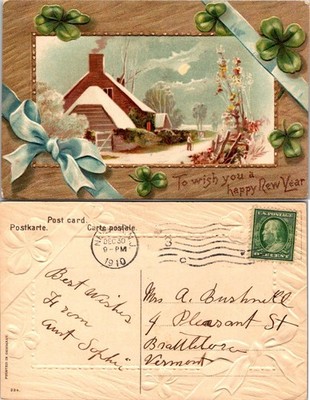 To wish you a
happy New Year
Post card.
Postkarte. Carte postale.
DEC 30
9-PM
1910
U.S. POSTAGE
Best Wishes
From
Aunt Sophie
Mrs A. Bushnell
9 Pleasant St
Brattleboro
Vermont